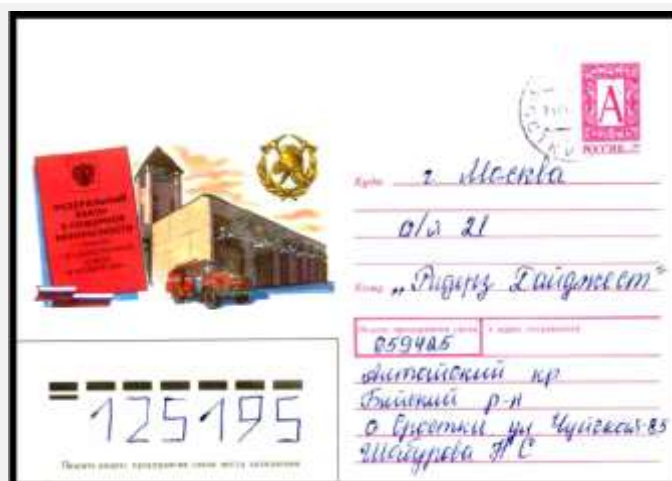 ФЕДЕРАЛЬНЫЙ
ЗАКОН
О ПОЖАРНОЙ
БЕЗОПАСНОСТИ
А
РОССИЯ
МОСКВА
Куда г. Москва
а/я 21
Кому „Ридерз Дайджест“
Индекс предприятия связи и адрес отправителя
659425
Алтайский кр
Бийский р-н
с Сростки ул Чуйская-85
Н С
125195
Пишите индекс предприятия связи места назначения